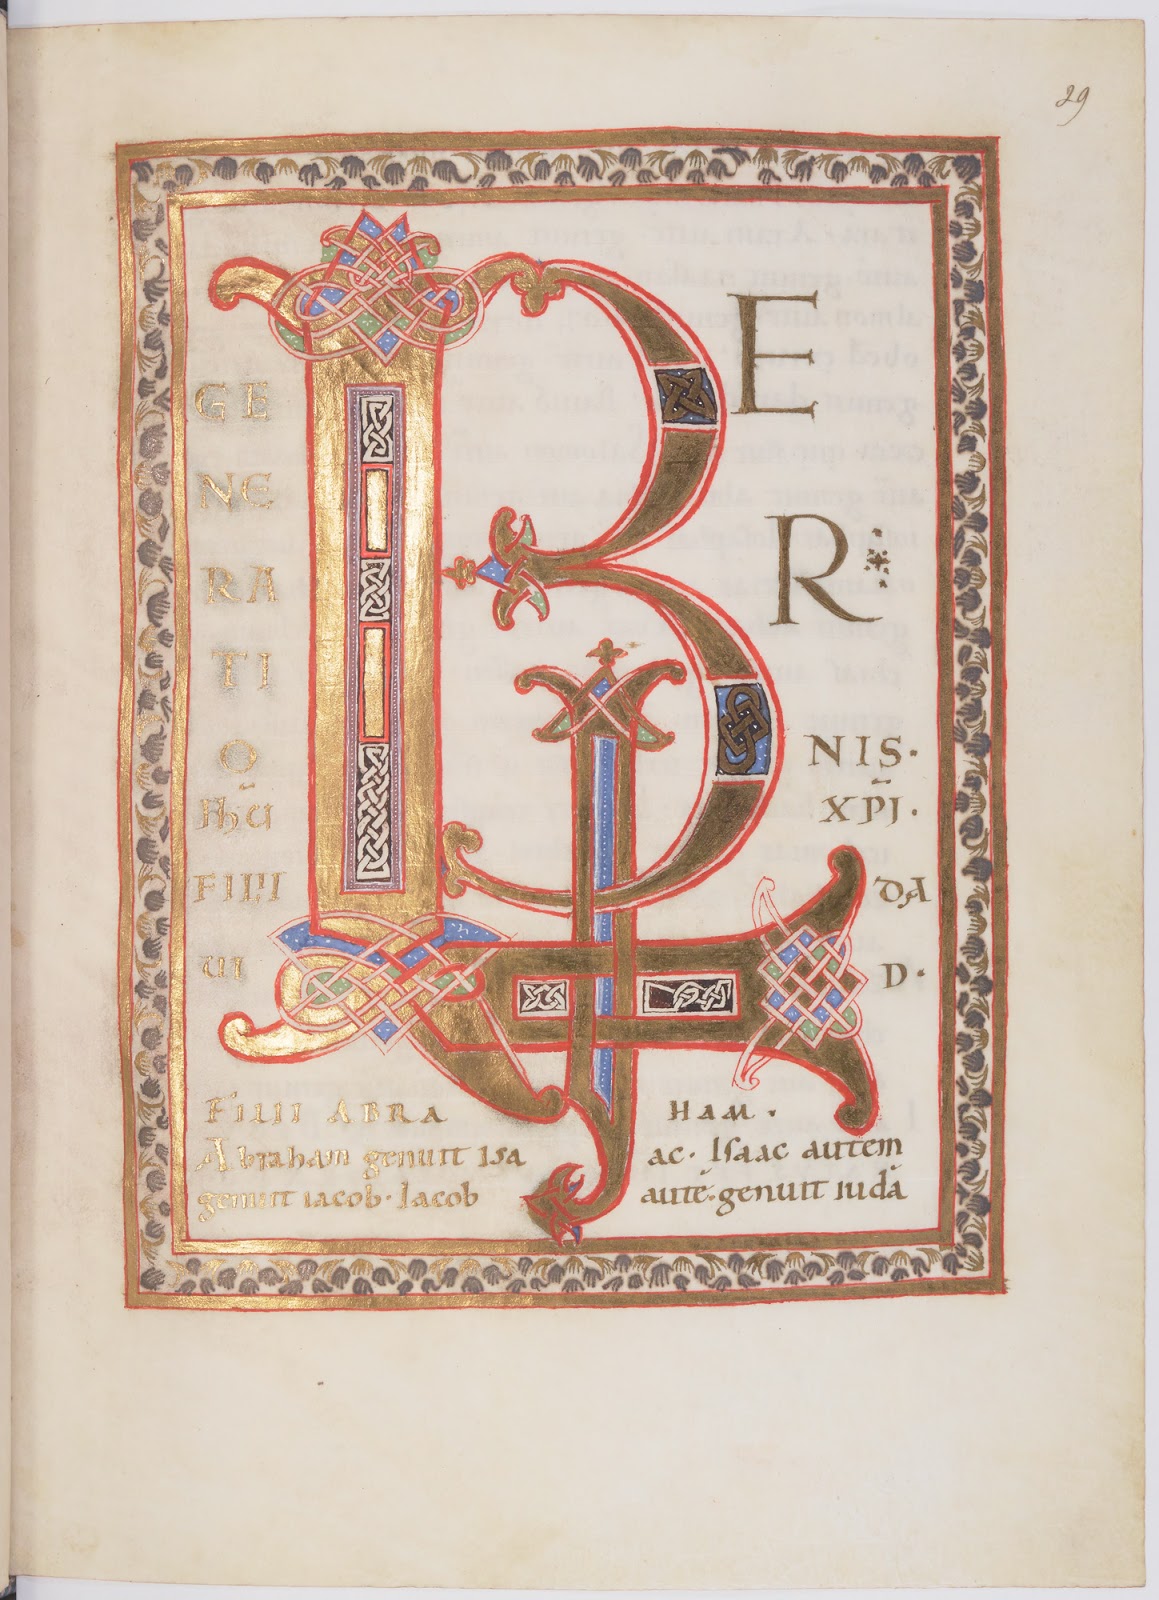 29
LIBER
GENERATIONIS·
IħU XPI·
FILII DA
UI D·
FILII ABRA HAM·
Abraham genuit Isa ac· Isaac autem
genuit iacob· Iacob autē· genuit iudā